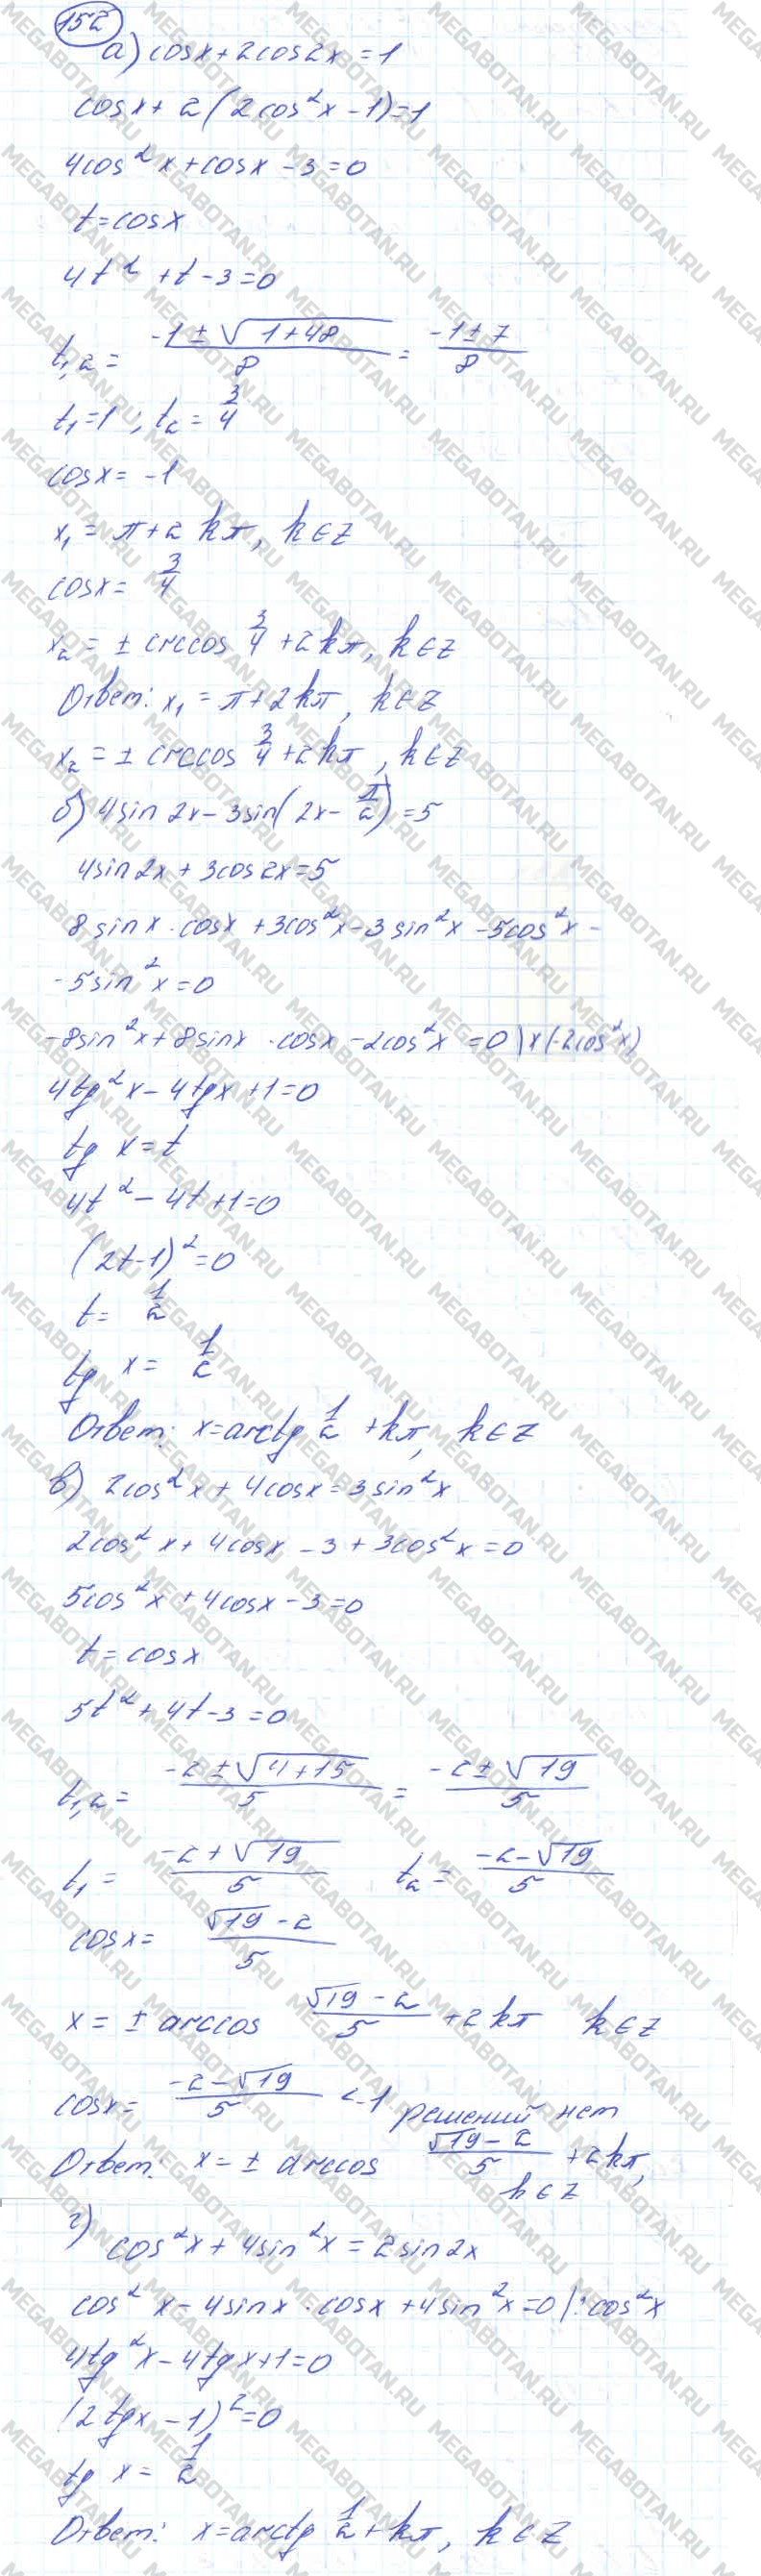 152
а) cosx + 2cos2x = 1
cosx + 2(2cos²x - 1) = 1
4cos²x + cosx - 3 = 0
t = cosx
4t² + t - 3 = 0
t₁,₂ = (-1 ± √(1+48))/8 = (-1 ± 7)/8
t₁ = 1 ; t₂ = 3/4
cosx = -1
x₁ = π + 2kπ, k ∈ Z
cosx = 3/4
x₂ = ± arccos 3/4 + 2kπ, k ∈ Z
Ответ: x₁ = π + 2kπ, k ∈ Z
x₂ = ± arccos 3/4 + 2kπ, k ∈ Z
б) 4sin 2x - 3sin(2x - π/2) = 5
4sin2x + 3cos2x = 5
8sinx · cosx + 3cos²x - 3sin²x - 5cos²x -
- 5sin²x = 0
-8sin²x + 8sinx · cosx - 2cos²x = 0 | x (-2cos²x)
4tg²x - 4tgx + 1 = 0
tg x = t
4t² - 4t + 1 = 0
(2t - 1)² = 0
t = 1/2
tg x = 1/2
Ответ: x = arctg 1/2 + kπ, k ∈ Z
в) 2cos²x + 4cosx = 3sin²x
2cos²x + 4cosx - 3 + 3cos²x = 0
5cos²x + 4cosx - 3 = 0
t = cosx
5t² + 4t - 3 = 0
t₁,₂ = (-2 ± √(4+15))/5 = (-2 ± √19)/5
t₁ = (-2 + √19)/5 t₂ = (-2 - √19)/5
cosx = (√19 - 2)/5
x = ± arccos (√19 - 2)/5 + 2kπ k ∈ Z
cosx = (-2 - √19)/5 < -1 решений нет
Ответ: x = ± arccos (√19 - 2)/5 + 2kπ,
k ∈ Z
г) cos²x + 4sin²x = 2sin2x
cos²x - 4sinx · cosx + 4sin²x = 0 | : cos²x
4tg²x - 4tgx + 1 = 0
(2tgx - 1)² = 0
tg x = 1/2
Ответ: x = arctg 1/2 + kπ, k ∈ Z
MEGABOTAN.RU